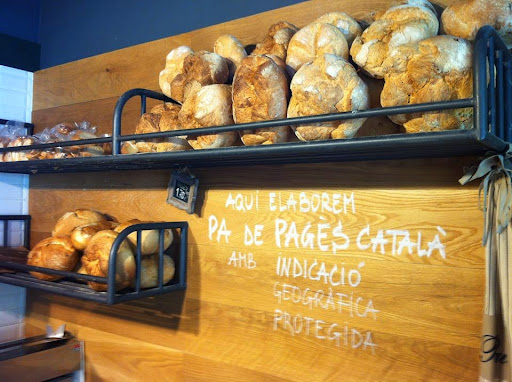 AQUÍ ELABOREM
PA DE PAGÈS CATALÀ
AMB INDICACIÓ
GEOGRÀFICA
PROTEGIDA